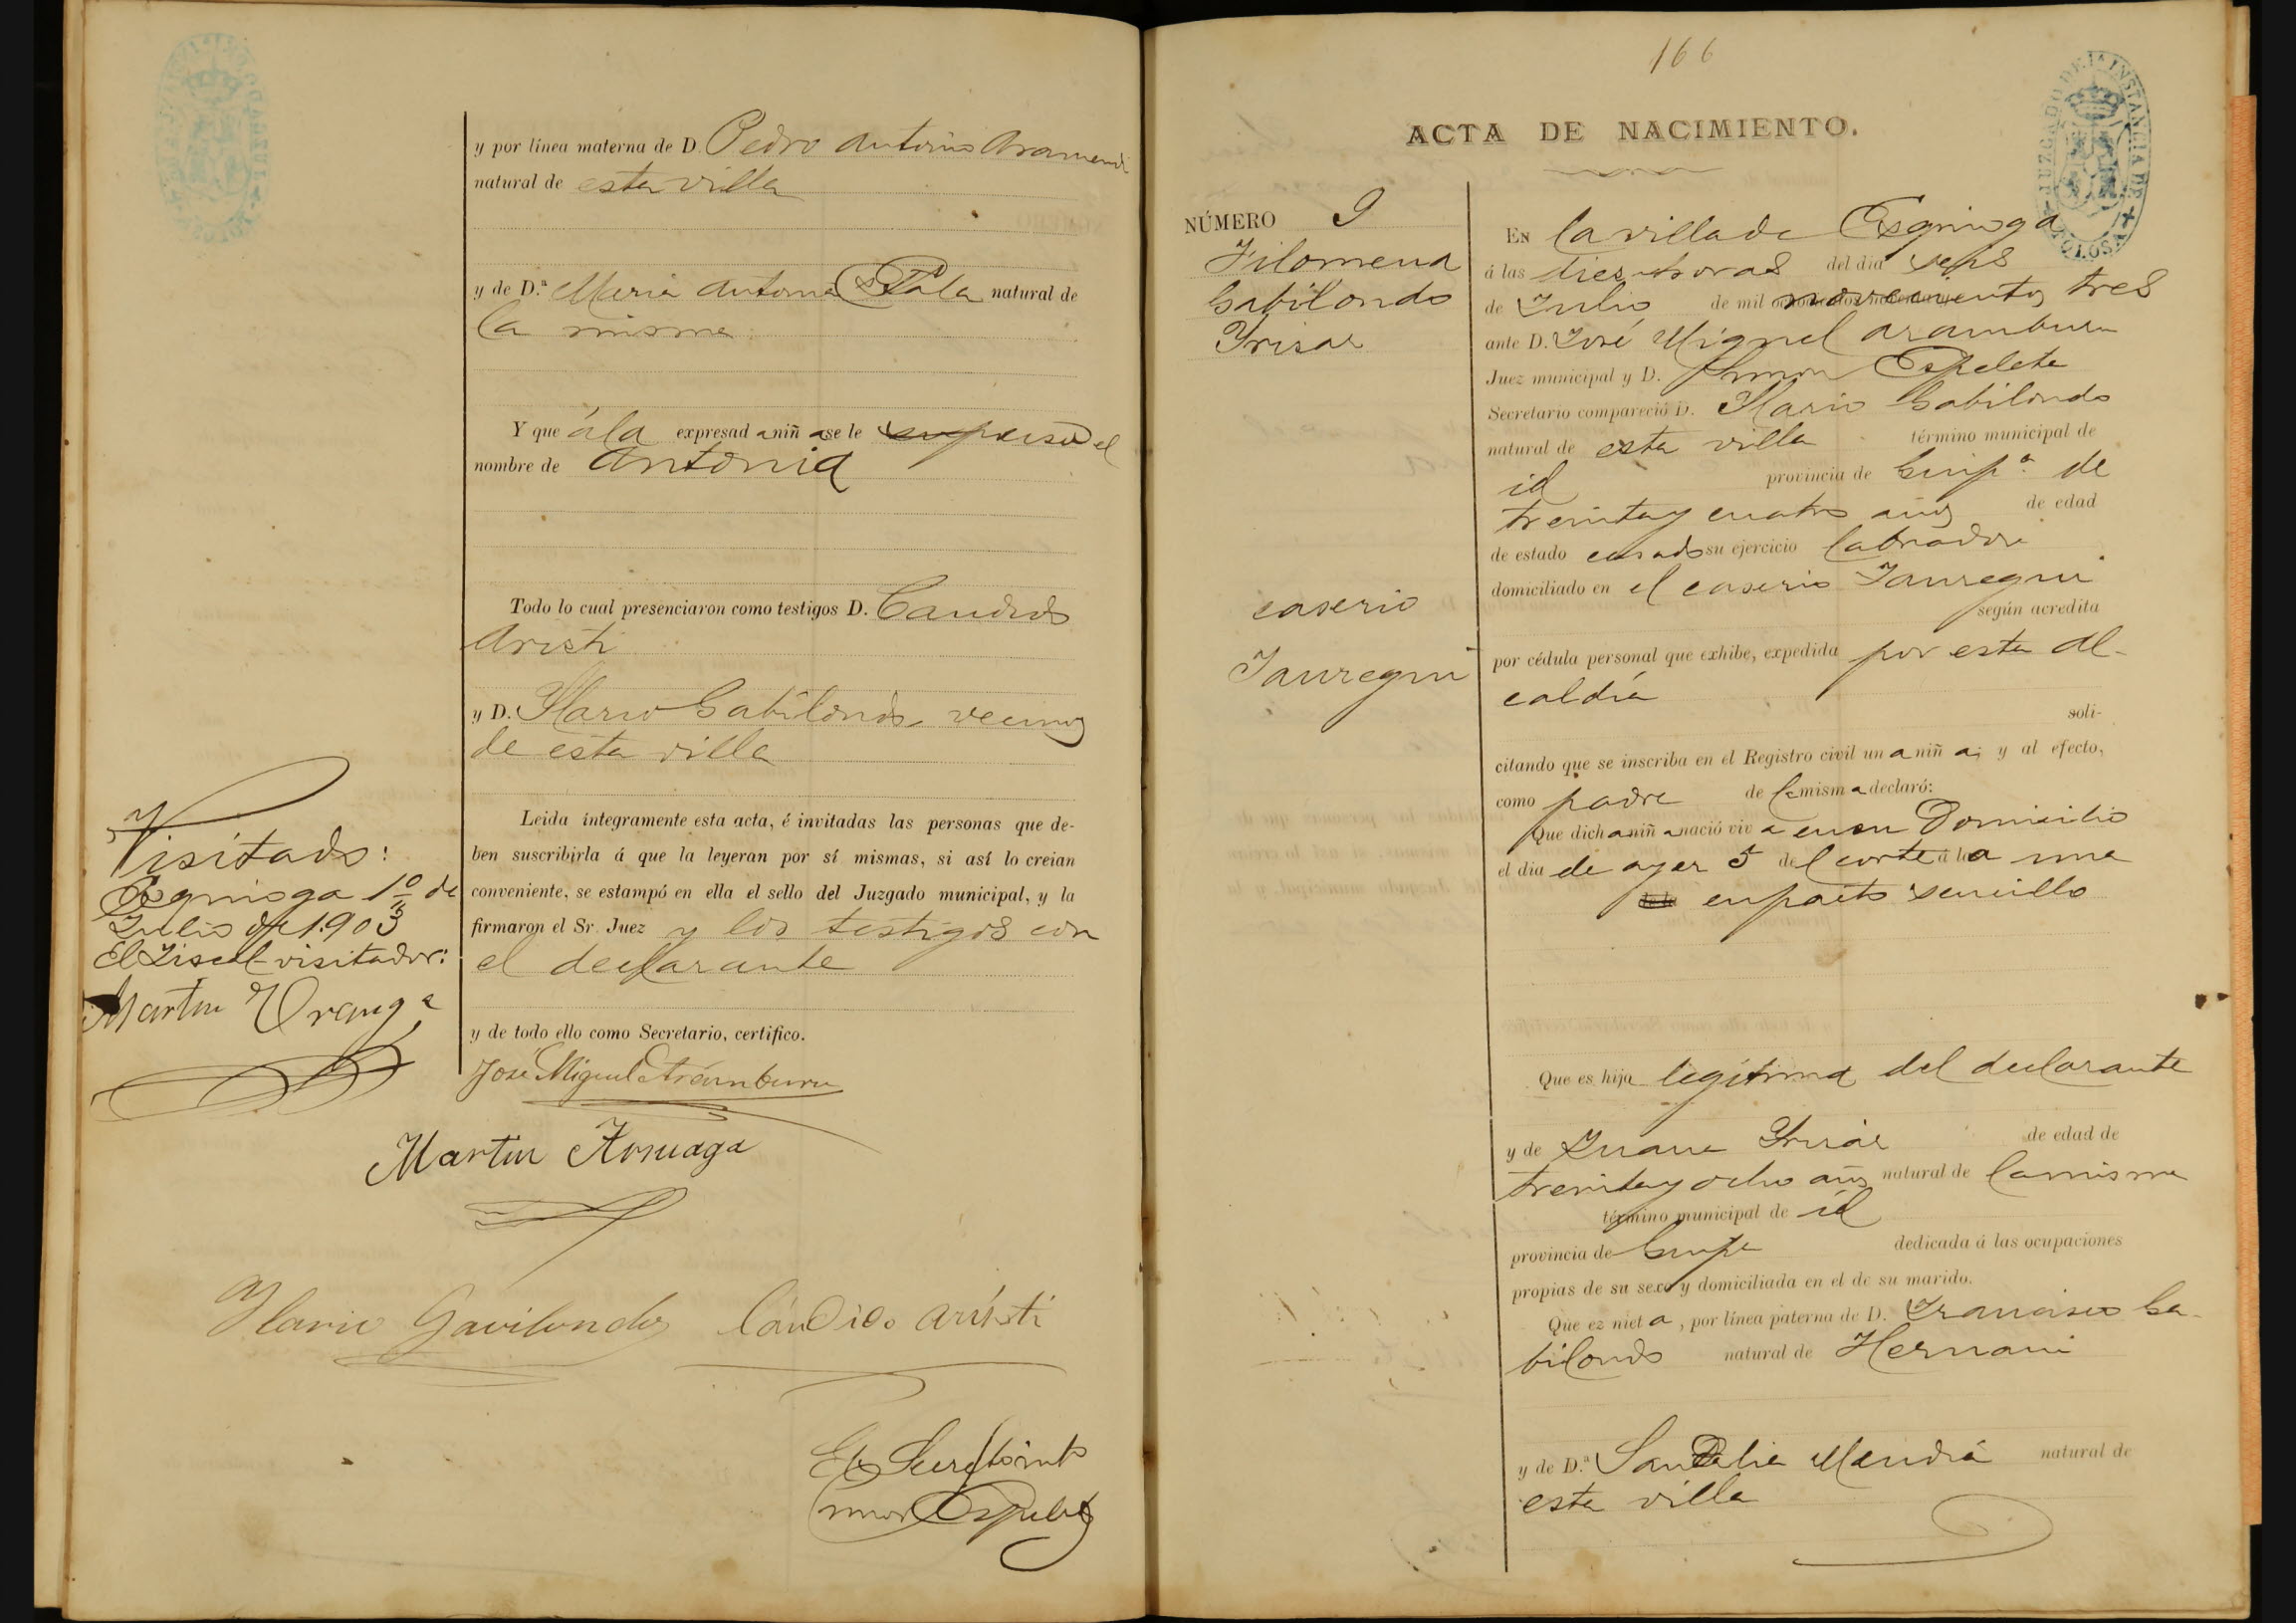 y por línea materna de D. Pedro Antonio Aramendi
natural de esta villa
y de D.ª Maria Antonia natural de
la misma
Y que á la expresad a niñ a se le el
nombre de Antonia
Todo lo cual presenciaron como testigos D. Candido
Aristi
y D. Ylario Gabilondo vecinos
de esta villa
Leida íntegramente esta acta, é invitadas las personas que de-
ben suscribirla á que la leyeran por sí mismas, si así lo creian
conveniente, se estampó en ella el sello del Juzgado municipal, y la
firmaron el Sr. Juez y los testigos con
el declarante
y de todo ello como Secretario, certifico.
José Miguel Aramburu
Martin
Ylario Gavilondo Cándido Aristi
El Secretario
Espeleta
Visitado:
Ezquioga 1º de
Julio de 1903
El Fiscal visitador:
Martin Oranga
166
ACTA DE NACIMIENTO.
JUZGADO DE 1ª INSTANCIA DE TOLOSA
NÚMERO 9
Filomena
Gabilondo
Yrizar
caserio
Jauregui
En la villa de Ezquioga
á las diez horas del dia seis
de Julio de mil novecientos tres
ante D. José Miguel Aramburu
Juez municipal y D. Simon Espeleta
Secretario compareció D. Ylario Gabilondo
natural de esta villa término municipal de
id provincia de Guipª. de
treinta y cuatro años de edad
de estado casado su ejercicio labrador
domiciliado en el caserio Jauregui
según acredita
por cédula personal que exhibe, expedida por esta Al-
caldía
soli-
citando que se inscriba en el Registro civil un a niñ a; y al efecto,
como padre de la mism a declaró:
Que dich a niñ a nació viv a en su Domicilio
el dia de ayer 5 del corte á la una
en parto sencillo
Que es hija legítima del declarante
y de Juana Yrizar de edad de
treinta y ocho años natural de la misma
término municipal de id
provincia de Guipa dedicada á las ocupaciones
propias de su sexo y domiciliada en el de su marido.
Que ez niet a, por línea paterna de D. Francisco Ga-
bilondo natural de Hernani
y de D.ª Sandalia Mendia natural de
esta villa